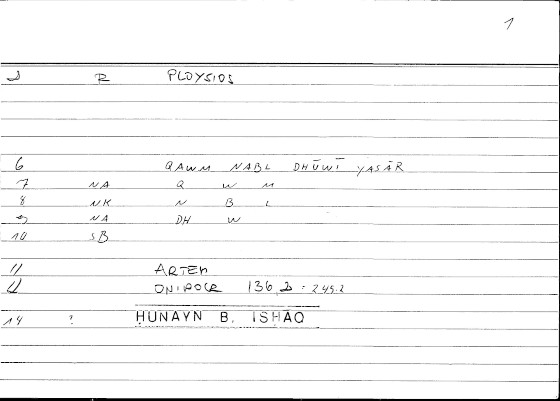 1
2 R PLOYSIOS
6 QAWM NABL DHŪWĪ YASĀR
7 NA Q W M
8 NK N B L
9 NA DH W
10 SB
11 ARTEM
12 ONIROCR 136,2 = 245.2
14 ? HUNAYN B. ISHĀQ